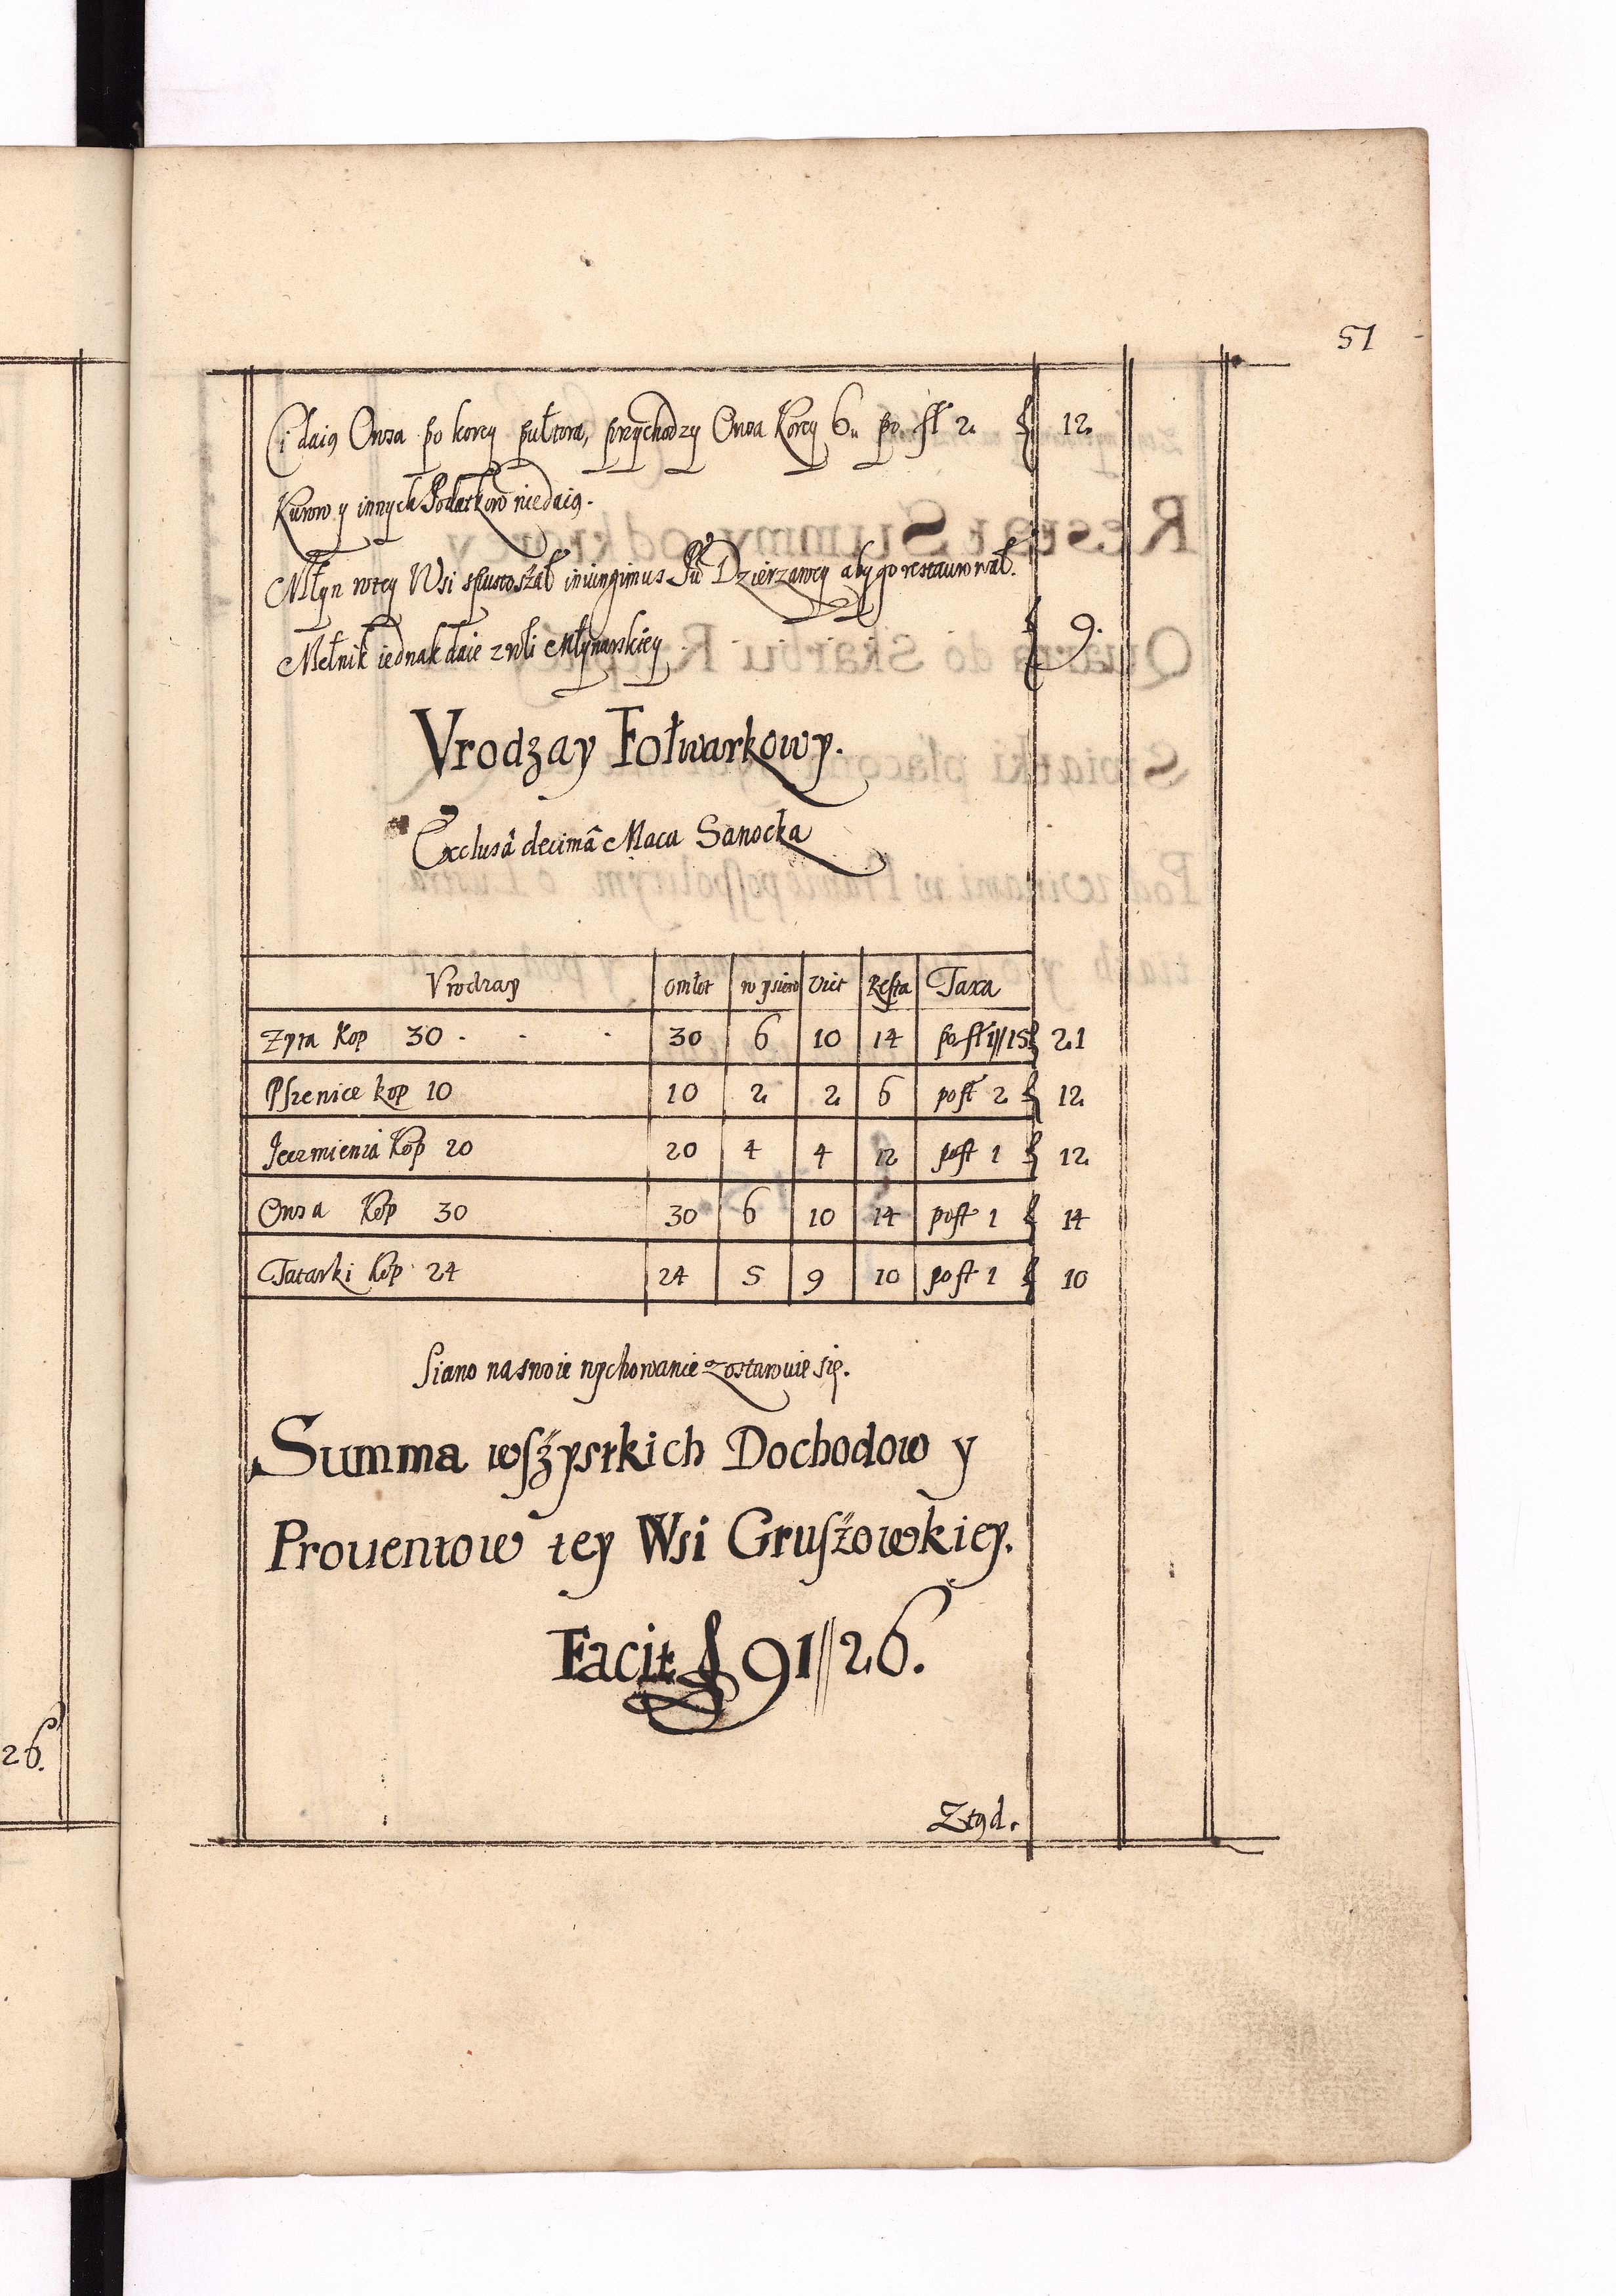 51
Ci daią Owsa po korcy pułtora, przychodzy Owsa Korcy 6. po fł 2. f 12.
Kurow y innych Podatkow niedaią.
Młyn wtey Wsi spustoszał iniungimus Dzierzawcy aby go restaurował.
Mełnik iednak daie z roli Młynarskiey f 9.
Vrodzay Fołwarkowy.
Exclusâ decimâ Maca Sanocka
Vrodzay omłot wysiew Vict Resta Taxa
Zyta Kop 30 . . . 30 6 10 14 po fł 1//15 f 21
Pszenice kop 10 10 2 2 6 po fł 2 f 12
Jeczmienia Kop 20 20 4 4 12 po fł 1 f 12
Owsa Kop 30 30 6 10 14 po fł 1 f 14
Tatarki kop 24 24 5 9 10 po fł 1 f 10
Siano na swoie wychowanie zostawuie się.
Summa wszystkich Dochodow y
Prouentow tey Wsi Gruszowkiey.
Facit f 91//26.
Ztąd.
26.